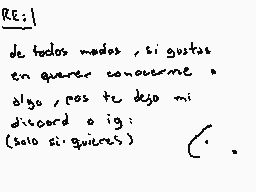 RE:|
de todos modos, si gustas
en querer conocerme o
algo, pos te dejo mi
discord o ig:
(solo si quieres)